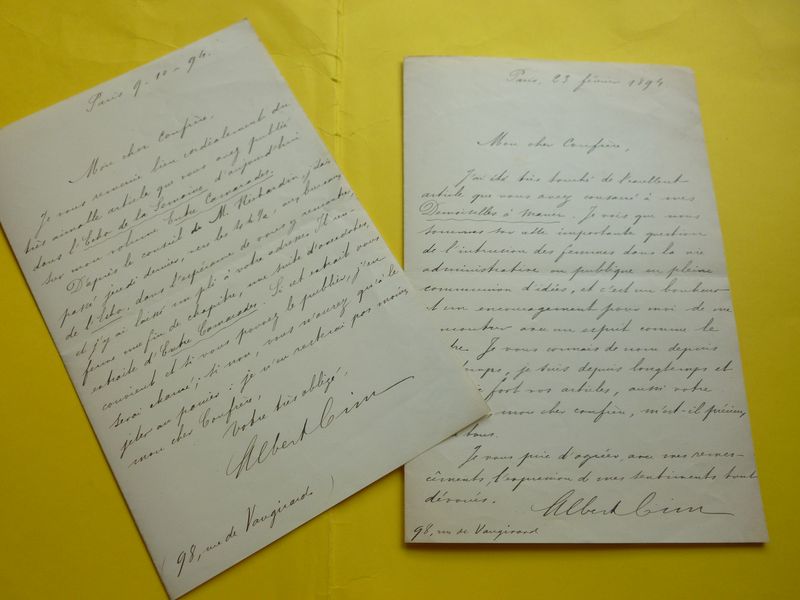 Paris 9-10-94.
Mon cher Confrère,
Je vous remercie bien cordialement du
très aimable article que vous avez publié
dans l'Echo de la Semaine d'aujourd'hui
sur mon volume Entre Camarades.
D'après le conseil de M. Richardin, j'étais
passé jeudi dernier, vers les 4h 1/2 aux bureaux
de l'Echo, dans l'espérance de vous y rencontrer,
et j'y ai laissé un pli à votre adresse. Il ren-
ferme une fin de chapitre, une suite d'anecdotes,
extraite d'Entre Camarades. Si cet extrait vous
convient et si vous pouvez le publier, j'en
serai charmé; si non, vous n'aurez qu'à le
jeter au panier: je n'en resterai pas moins,
mon cher Confrère,
Votre très obligé,
Albert Cim
(98, rue de Vaugirard)
Paris, 23 février 1894
Mon cher Confrère,
J'ai été très touché de l'excellent
article que vous avez consacré à mes
Demoiselles à marier. Je vois que nous
sommes sur cette importante question
de l'intrusion des femmes dans la vie
administrative ou publique en pleine
communion d'idées, et c'est un bonheur
et un encouragement pour moi de me
montrer avec un esprit comme le
tre. Je vous connais de nom depuis
temps, je suis depuis longtemps et
fort vos articles, aussi votre
mon cher confrère, m'est-il précieux
tous.
Je vous prie d'agréer, avec mes remer-
cîments, l'expression de mes sentiments tout
dévoués.
Albert Cim
98, rue de Vaugirard